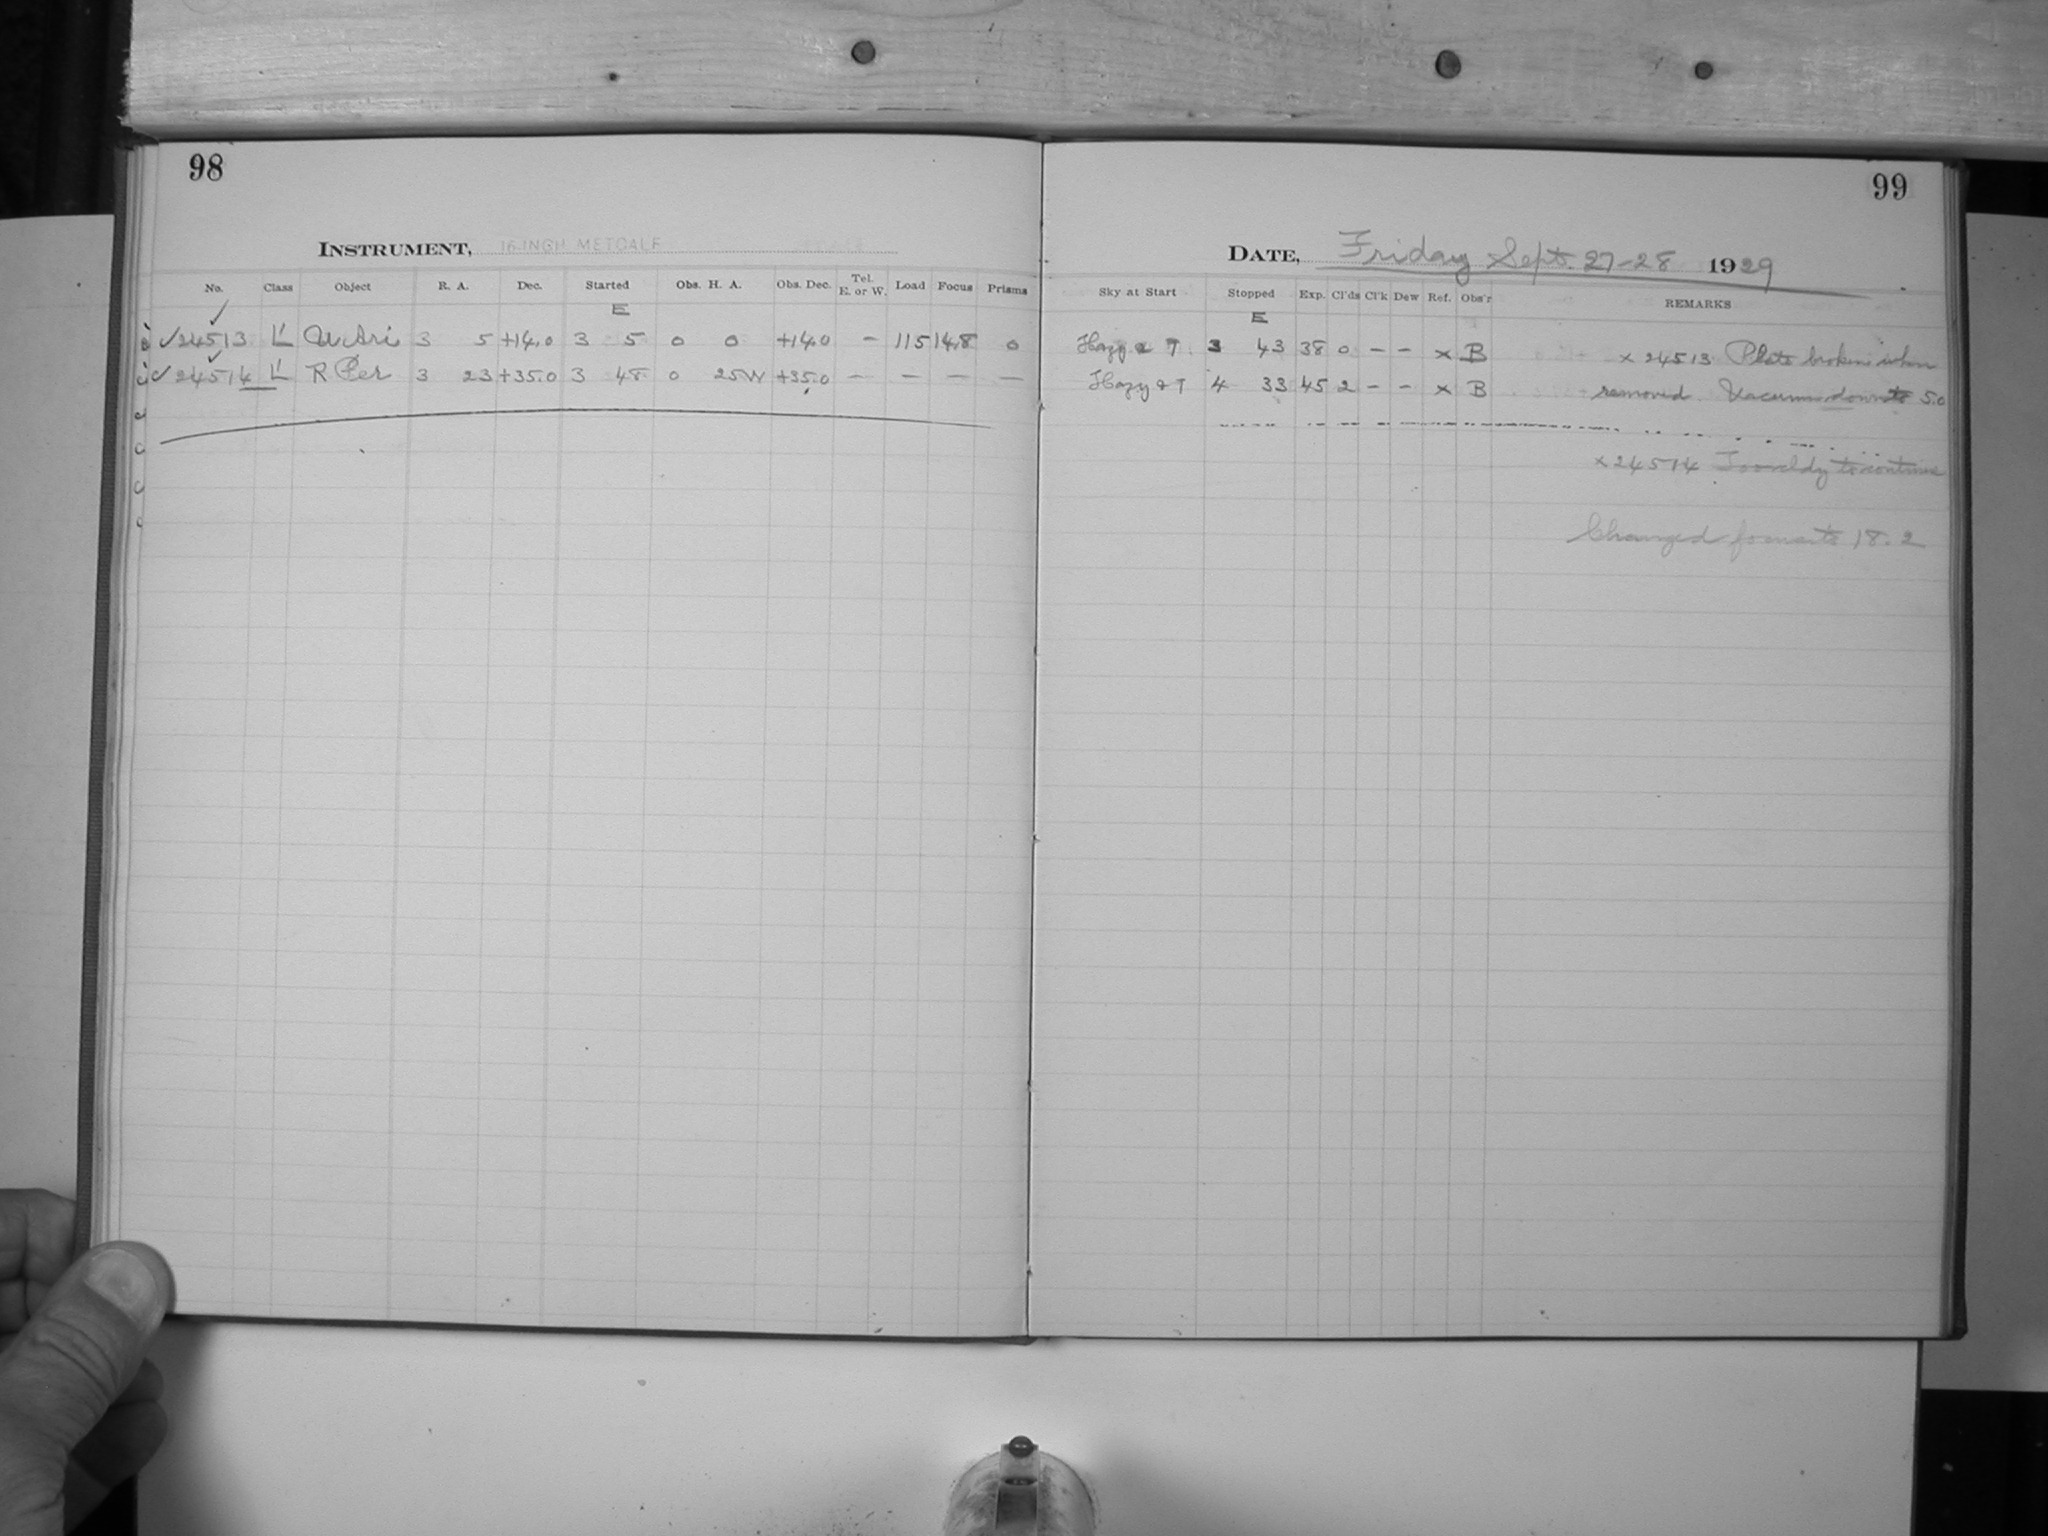 98
INSTRUMENT, 16-INCH METCALF
No. Class Object R. A. Dec. Started Obs. H. A. Obs. Dec. Tel. E. or W. Load Focus Prisms
E
✓24513 L' U Ari 3 5 +14.0 3 5 0 0 +14.0 – 115 14.8 0
✓24514 L' R Per 3 23 +35.0 3 48 0 25W +35.0 — — — —
99
DATE, Friday Sept. 27-28 1929
Sky at Start Stopped Exp. Cl'ds Cl'k Dew Ref. Obs'r REMARKS
E
Hazy & T 3 43 38 0 – – x B x 24513 Plate broken when
Hazy & T 4 33 45 2 – – x B removed. Vacuum down to 5.0
x 24514 Too cldy to continue
Changed focus to 18.2